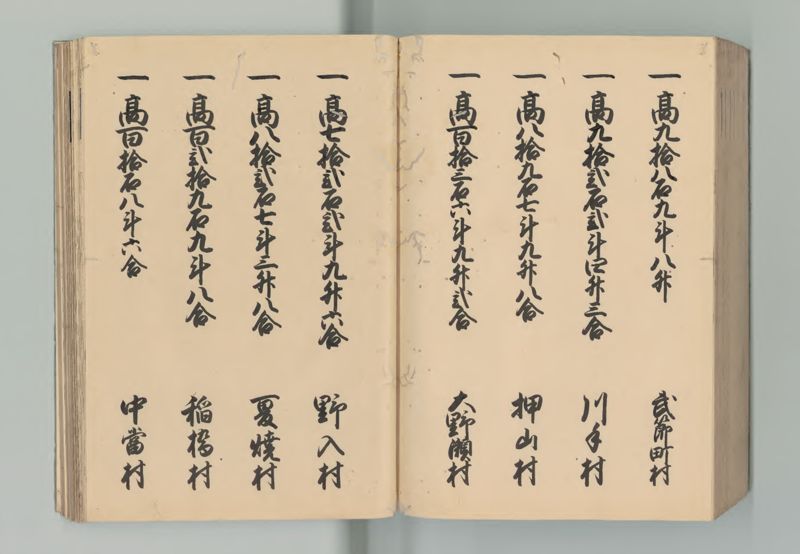 一高九拾八石九斗八升 武節町村
一高九拾弐石弐斗四升三合 川手村
一高八拾九石七斗九升八合 押山村
一高百拾三石六斗九升弐合 大野瀬村
一高七拾弐石弐斗九升六合 野入村
一高八拾弐石七斗三升八合 夏焼村
一高百弐拾九石九斗八合 稲橋村
一高百拾石八斗六合 中當村